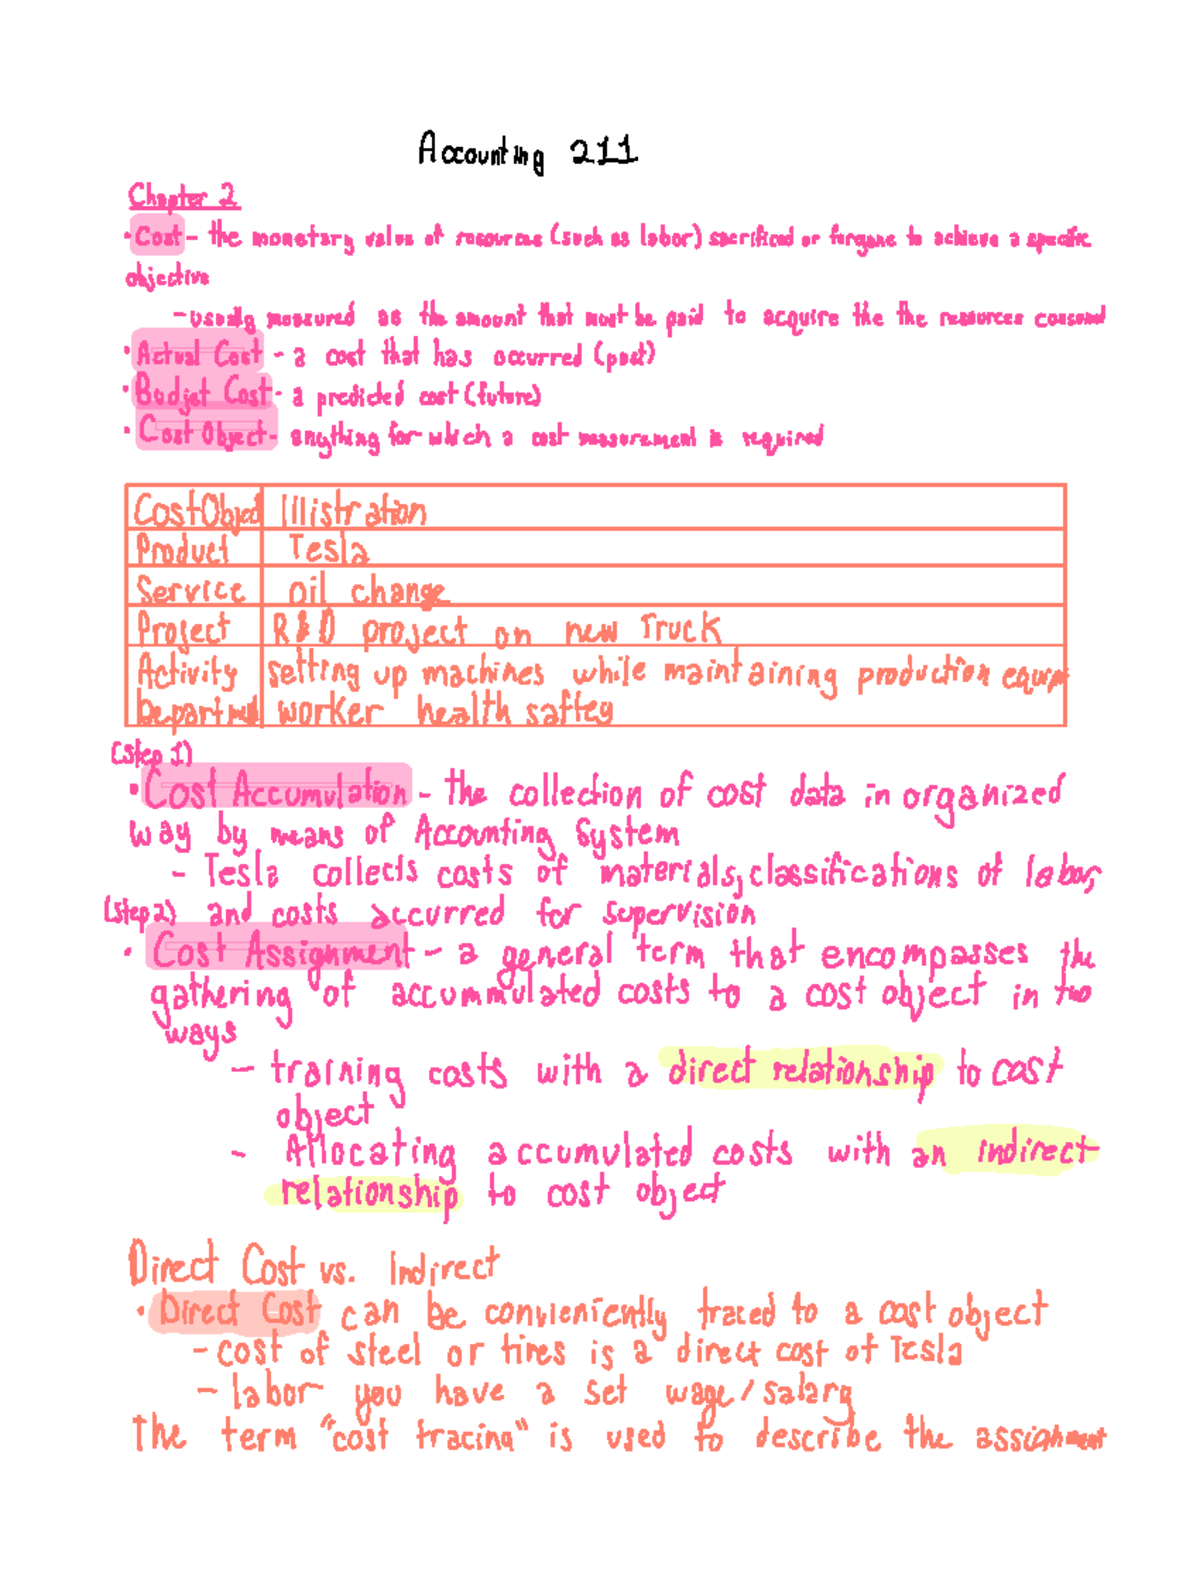 Accounting 211
Chapter 2
· Cost - the monetary value of resources (such as labor) sacrificed or forgone to achieve a specific
objective
- usually measured as the amount that must be paid to acquire the the resources consumed
· Actual Cost - a cost that has occurred (past)
· Budjet Cost - a predicted cost (future)
· Cost Object - anything for which a cost measurement is required
Cost Object Illistration
Product Tesla
Service oil change
Project R&D project on new Truck
Activity setting up machines while maintaining production equip
Department worker health saftey
(Step 1)
· Cost Accumulation - the collection of cost data in organized
way by means of Accounting System
- Tesla collects costs of materials, classifications of labor,
(Step 2) and costs accurred for supervision
· Cost Assignment - a general term that encompasses the
gathering of accummulated costs to a cost object in two
ways
- training costs with a direct relationship to cost
object
- Allocating accumulated costs with an indirect
relationship to cost object
Direct Cost vs. Indirect
· Direct Cost can be convieniently traced to a cost object
- cost of steel or tires is a direct cost of Tesla
- labor you have a set wage/salary
The term "cost tracing" is used to describe the assignment